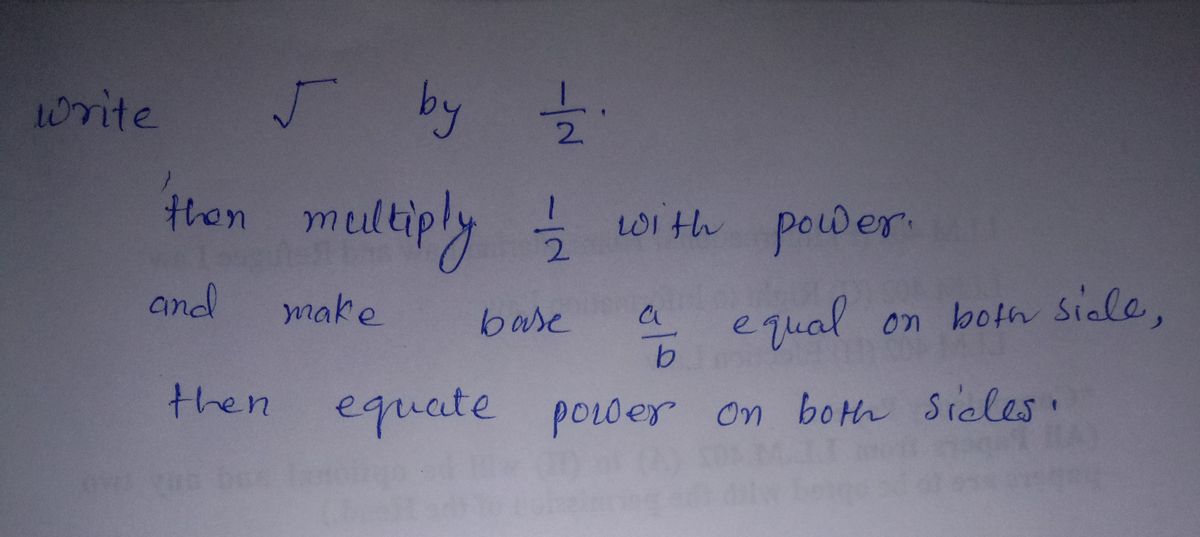 write √ by 1/2.
then multiply 1/2 with power.
and make base a/b equal on both side,
then equate power on both sides.